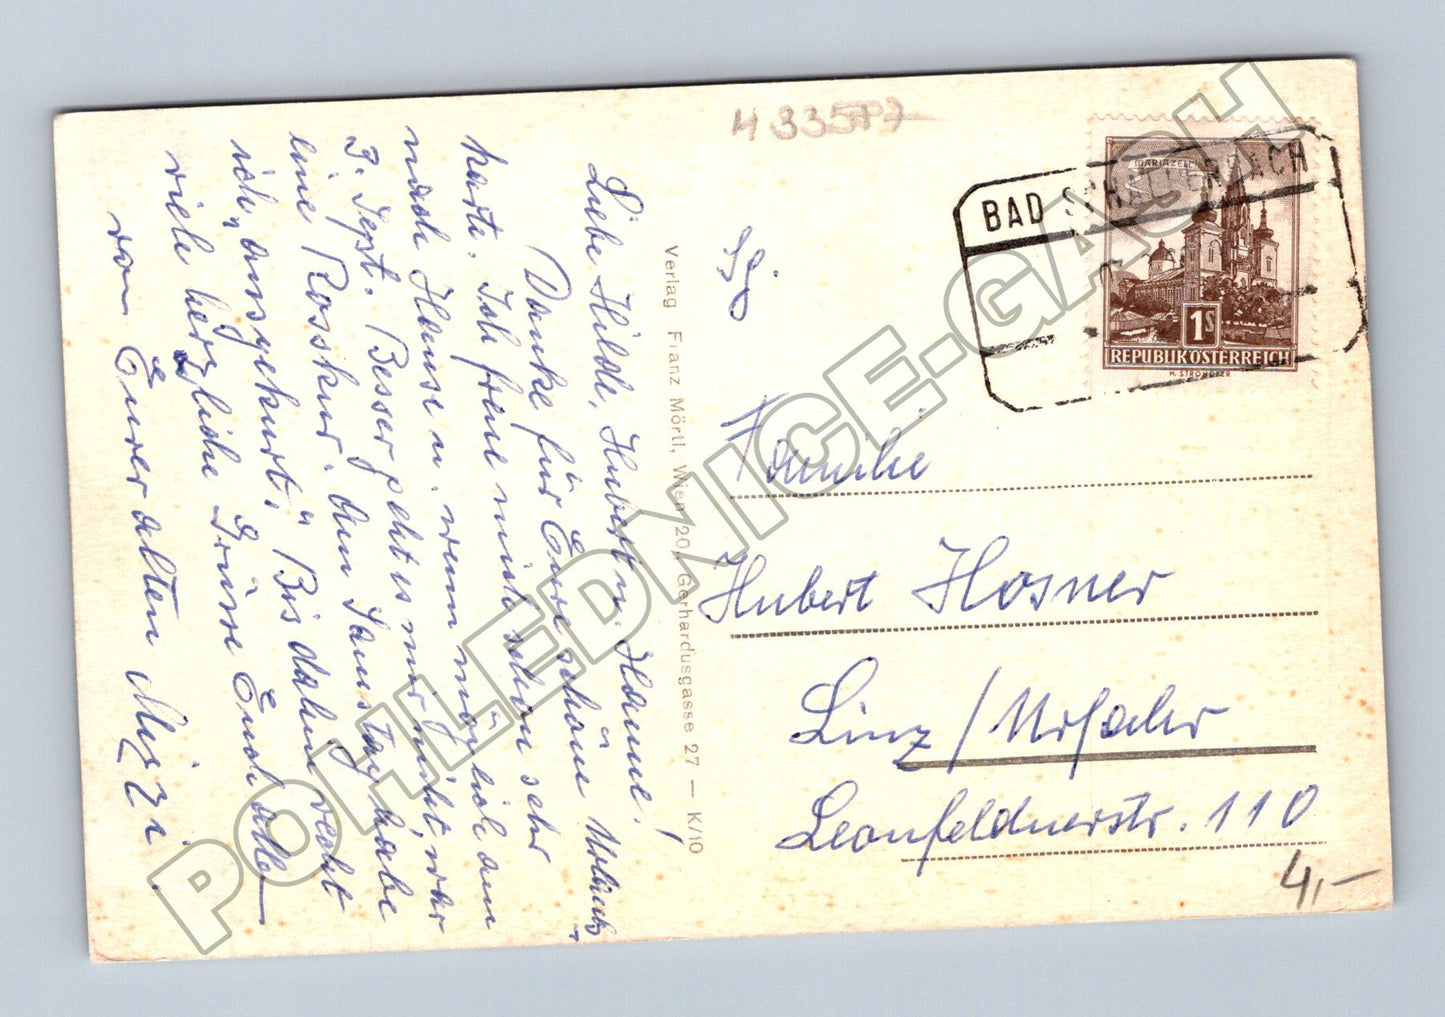 4 33587
BAD SCHALLERBACH
MARIAZELL
1S
REPUBLIK ÖSTERREICH
H. STROHOFER
Liebe Hilde, Hubert u. Hanne!
Danke für Eure schöne Urlaubs
karte. Ich freue mich schon sehr
nach Hause u. wenn möglich am
3. Sept. Besser geht es mir nicht, eher
eine Rosskur. Am Samstag habe
ich "ausgekurt." Bis dahin recht
viele herzliche Grüsse Euch allen
von Eurer alten Mizzi.
Verlag Franz Mörtl, Wien 20, Gerhardusgasse 27 — K/10
Familie
Hubert Hosner
Linz/Urfahr
Leonfeldnerstr. 110
4,-
POHLEDNICE-GACH